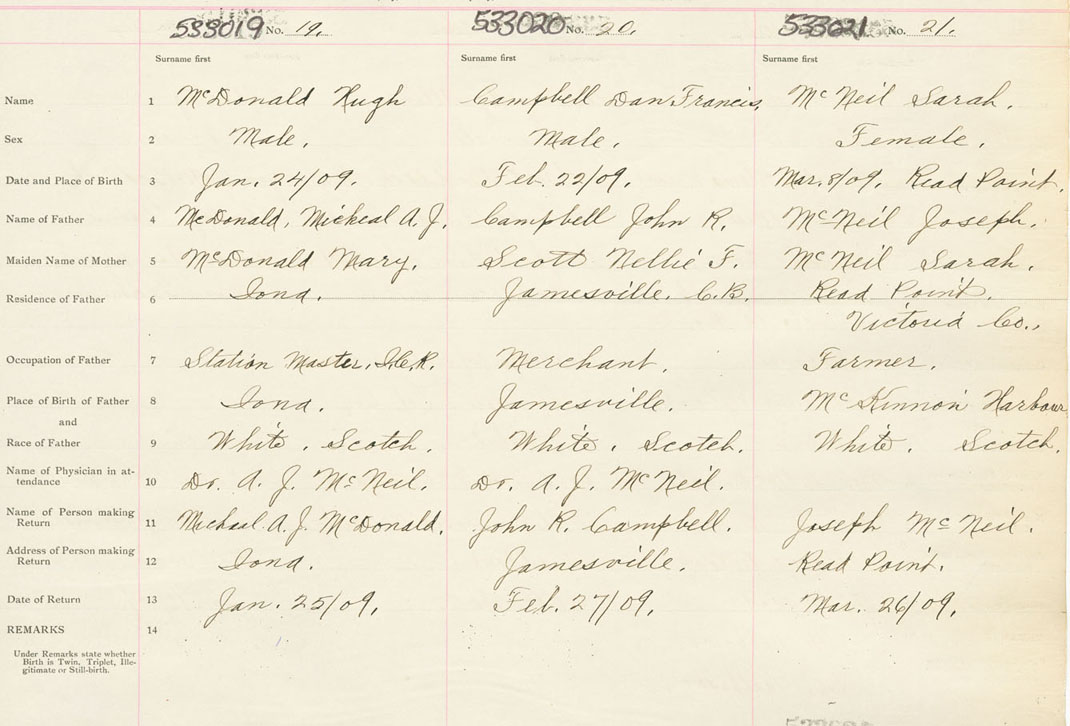 533019 No. 19. 533020 No. 20. 533021 No. 21.
Surname first Surname first Surname first
Name 1 McDonald Hugh Campbell Dan Francis. McNeil Sarah.
Sex 2 Male. Male. Female.
Date and Place of Birth 3 Jan. 24/09. Feb. 22/09. Mar. 8/09. Read Point.
Name of Father 4 McDonald, Micheal A. J. Campbell John R. McNeil Joseph.
Maiden Name of Mother 5 McDonald Mary. Scott Nellie F. McNeil Sarah.
Residence of Father 6 Iona. Jamesville. C.B. Read Point.
Victoria Co.,
Occupation of Father 7 Station Master, I.C.R. Merchant. Farmer.
Place of Birth of Father 8 Iona. Jamesville. McKinnon Harbour
and
Race of Father 9 White. Scotch. White. Scotch. White. Scotch.
Name of Physician in at-
tendance 10 Dr. A. J. McNeil. Dr. A. J. McNeil.
Name of Person making
Return 11 Michael A. J. McDonald. John R. Campbell. Joseph McNeil.
Address of Person making
Return 12 Iona. Jamesville. Read Point.
Date of Return 13 Jan. 25/09. Feb. 27/09. Mar. 26/09.
REMARKS 14
Under Remarks state whether
Birth is Twin, Triplet, Ille-
gitimate or Still-birth.